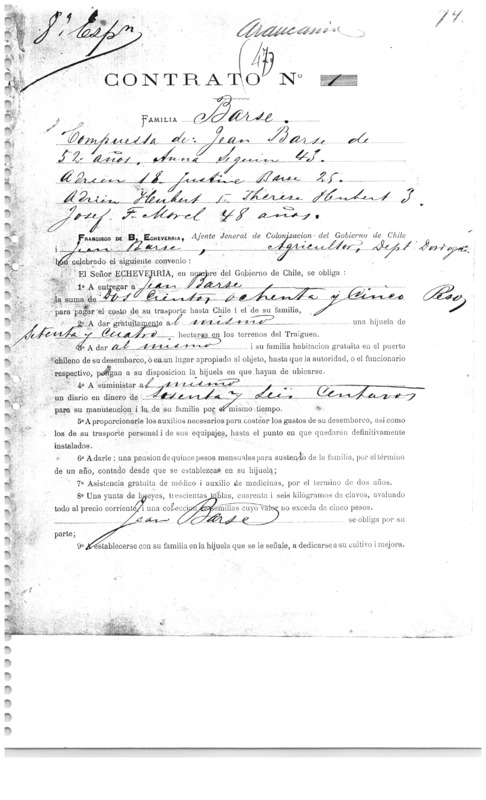 8ª Espn
Araucania
74.
(473)
CONTRATO Nº 1
FAMILIA Barse.
Compuesta de: Jean Barse de
52 años. Anna Seguin 43.
Adrien 18. Justine Barse 25.
Adrien Herbert 5. Thérèse Herbert 3.
Josef. F. Morel 48 años.
FRANCISCO DE B. ECHEVERRIA, Ajente Jeneral de Colonizacion del Gobierno de Chile
i Jean Barse, Agricultor, Dept Dordogne
han celebrado el siguiente convenio :
El Señor ECHEVERRIA, en nombre del Gobierno de Chile, se obliga :
1º A entregar a Jean Barse
la suma de Dos Cientos ochenta y Cinco Pesos
para pagar el costo de su trasporte hasta Chile i el de su familia,
2º A dar gratuitamente al mismo una hijuela de
Setenta y Cuatro hectareas en los terrenos del Traiguen.
3º A dar al mismo i su familia habitacion gratuita en el puerto
chileno de su desembarco, ó en un lugar apropiado al objeto, hasta que la autoridad, o el funcionario
respectivo, pongan a su disposicion la hijuela en que hayan de ubicarse.
4º A suministar al mismo
un diario en dinero de Sesenta y Seis Centavos
para su manutencion i la de su familia por el mismo tiempo.
5º A proporcionarle los auxilios necesarios para costear los gastos de su desembarco, asi como
los de su trasporte personal i de sus equipajes, hasta el punto en que quedarán definitivamente
instalados.
6º A darle : una pension de quince pesos mensuales para sustento de la familia, por el término
de un año, contado desde que se establezcan en su hijuela;
7º Asistencia gratuita de médico i auxilio de medicinas, por el termino de dos años.
8º Una yunta de bueyes, trescientas tablas, cuarenta i seis kilógramos de clavos, avaluado
todo al precio corriente, i una coleccion de semillas cuyo valor no exceda de cinco pesos.
Jean Barse se obliga por su
parte;
9º A establecerse con su familia en la hijuela que se le señale, a dedicarse a su cultivo i mejora.